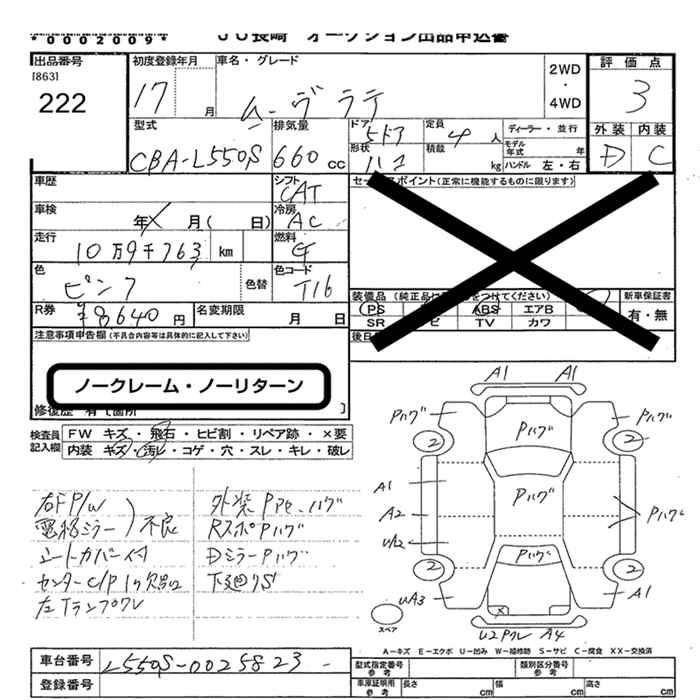 *0002009*
JU長崎 オークション出品申込書
出品番号
[863]
222
初度登録年月
17 月
車名・グレード
ムーヴラテ
2WD
・
4WD
評価点
3
外装 内装
D C
型式
CBA-L550S
排気量
660 cc
ドア
5ドア
形状
ハコ
定員
4 人
積載
kg
ディーラー・並行
モデル年式 年
ハンドル 左・右
車歴
シフト
CAT
車検
年 月( 日)
冷房
AC
走行
10万9千763 km
燃料
G
色
ピンク
色替
色コード
T16
R券
¥8640 円
名変期限
月 日
セールスポイント(正常に機能するものに限ります)
装備品(純正品に をつけてください)
PS
ABS エアB
SR
TV カワ
新車保証書
有・無
後日
注意事項申告欄(不具合内容等は具体的に記入して下さい)
ノークレーム・ノーリターン
修復歴 有[箇所 ]
検査員
記入欄
FW キズ・飛石・ヒビ割・リペア跡・×要
内装 キズ・汚レ・コゲ・穴・スレ・キレ・破レ
右F P/W
電格ミラー 不良
シートカバー付
センターC/P 1ヶ欠品
左Tランプワレ
外装 ハゲ
RスポPハゲ
DミラーPハゲ
下廻りS
A1 A1
Pハゲ
Pハゲ
Pハゲ
2
2
A1
Pハゲ
A2
Pハゲ
U2
Pハゲ
2
2
UA3
A1
スペア
U2 Pワレ A4
A-キズ E-エクボ U-凹み W-補修跡 S-サビ C-腐食 XX-交換済
車台番号
L550S-0025823
登録番号
型式指定番号
参考
類別区分番号
参考
車庫証明用
参考
長さ cm
幅 cm
高さ cm